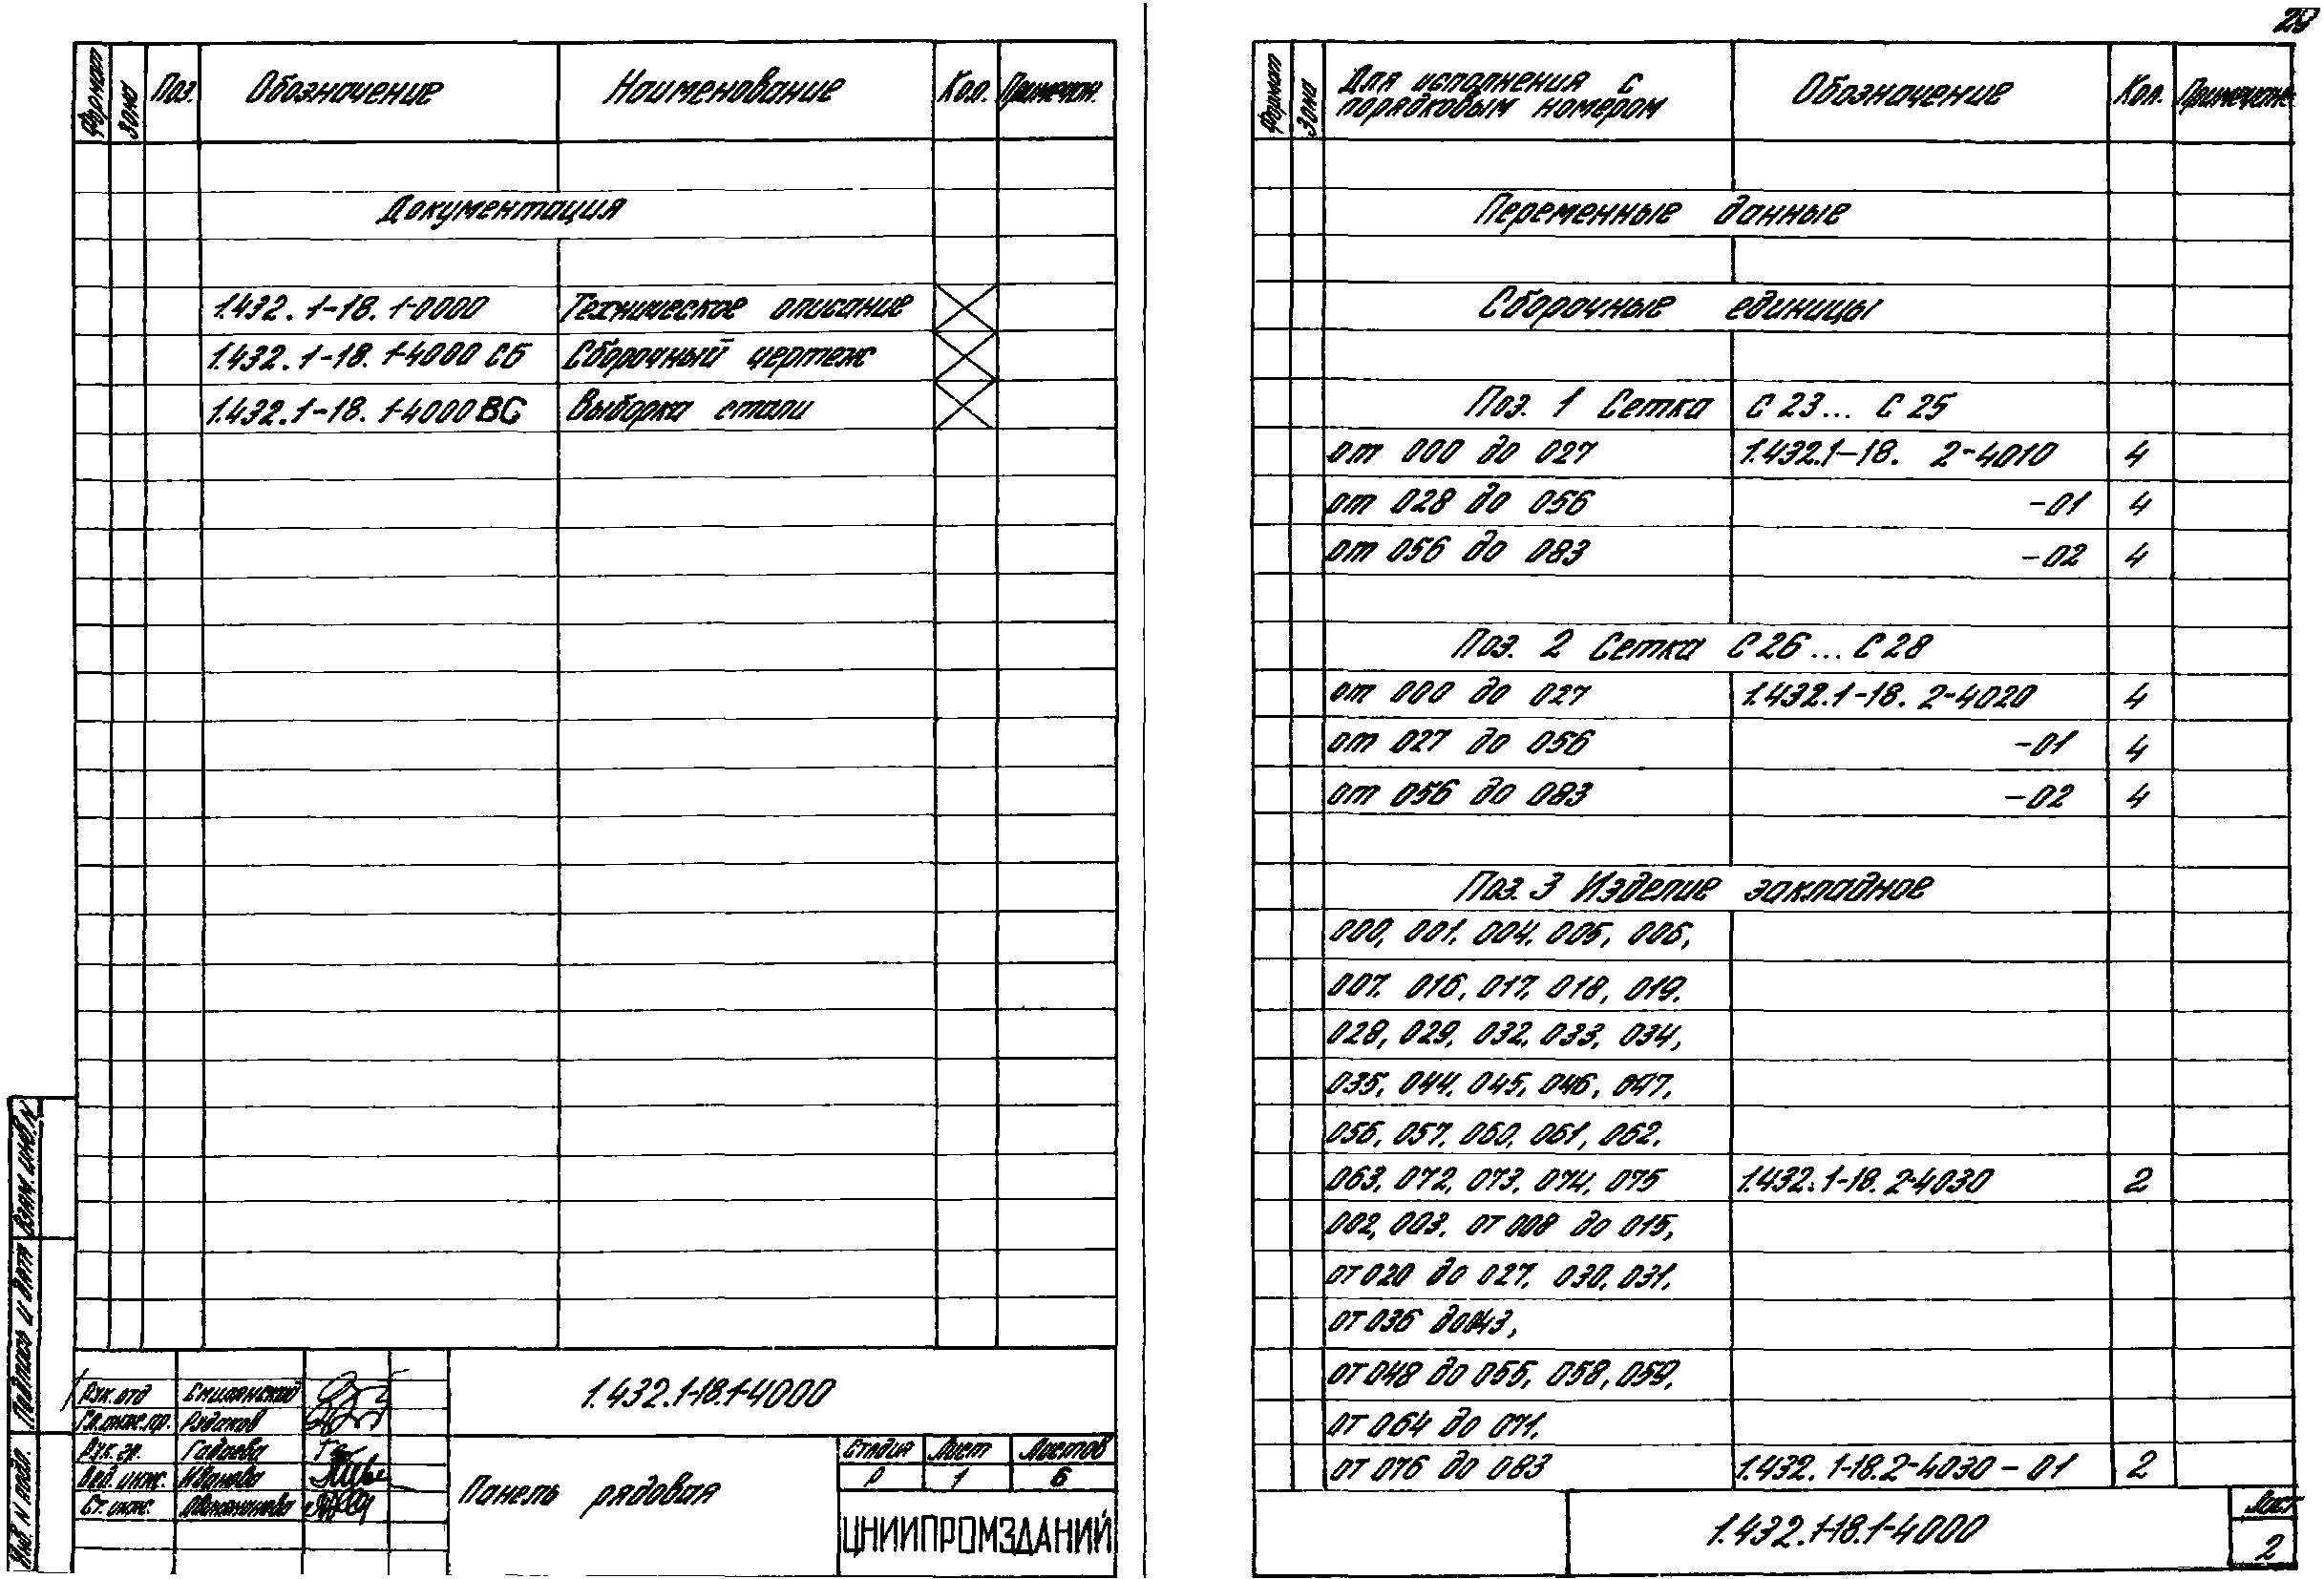 29
Формат Зона Поз. Обозначение Наименование Кол. Примечан.
Документация
1.432.1-18.1-0000 Техническое описание
1.432.1-18.1-4000 СБ Сборочный чертеж
1.432.1-18.1-4000 ВС Выборка стали
Взам. инв. N
Подпись и дата
Инв. N подл.
Рук. отд Смилянский
Гл. инж. пр. Рудаков
Рук. гр.
Вед. инж. Иванова
Ст. инж.
1.432.1-18.1-4000
Панель рядовая
Стадия Лист Листов
Р 1 6
ЦНИИПРОМЗДАНИЙ
Формат Зона Для исполнения с порядковым номером Обозначение Кол. Примечание
Переменные данные
Сборочные единицы
Поз. 1 Сетка С 23... С 25
от 000 до 027 1.432.1-18. 2-4010 4
от 028 до 056 -01 4
от 056 до 083 -02 4
Поз. 2 Сетка С 26... С 28
от 000 до 027 1.432.1-18. 2-4020 4
от 027 до 056 -01 4
от 056 до 083 -02 4
Поз. 3 Изделие закладное
000, 001, 004, 005, 006,
007, 016, 017, 018, 019,
028, 029, 032, 033, 034,
035, 044, 045, 046, 047,
056, 057, 060, 061, 062,
063, 072, 073, 074, 075 1.432.1-18. 2-4030 2
002, 003, от 008 до 015,
от 020 до 027, 030, 031,
от 036 до 043,
от 048 до 055, 058, 059,
от 064 до 071,
от 076 до 083 1.432.1-18.2-4030-01 2
1.432.1-18.1-4000
Лист
2